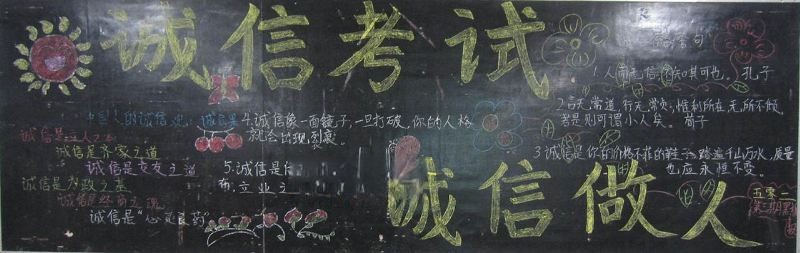 诚信考试
诚信做人
名言警句
1.人而无信,不知其可也。孔子
2.言无常信,行无常贞,惟利所在,无所不倾,
若是则可谓小人矣。荀子
3.诚信是你的价格不菲的鞋子,踏遍千山万水,质量
也应永恒不变。
4.诚信像一面镜子,一旦打破,你的人格
就会出现裂裹。
5.诚信是
立业之
中国人的诚信观:诚信是
诚信是立人之
诚信是齐家之道
诚信是交友之道
诚信是为政之基
诚信是经商之魂
诚信是“心灵良药”